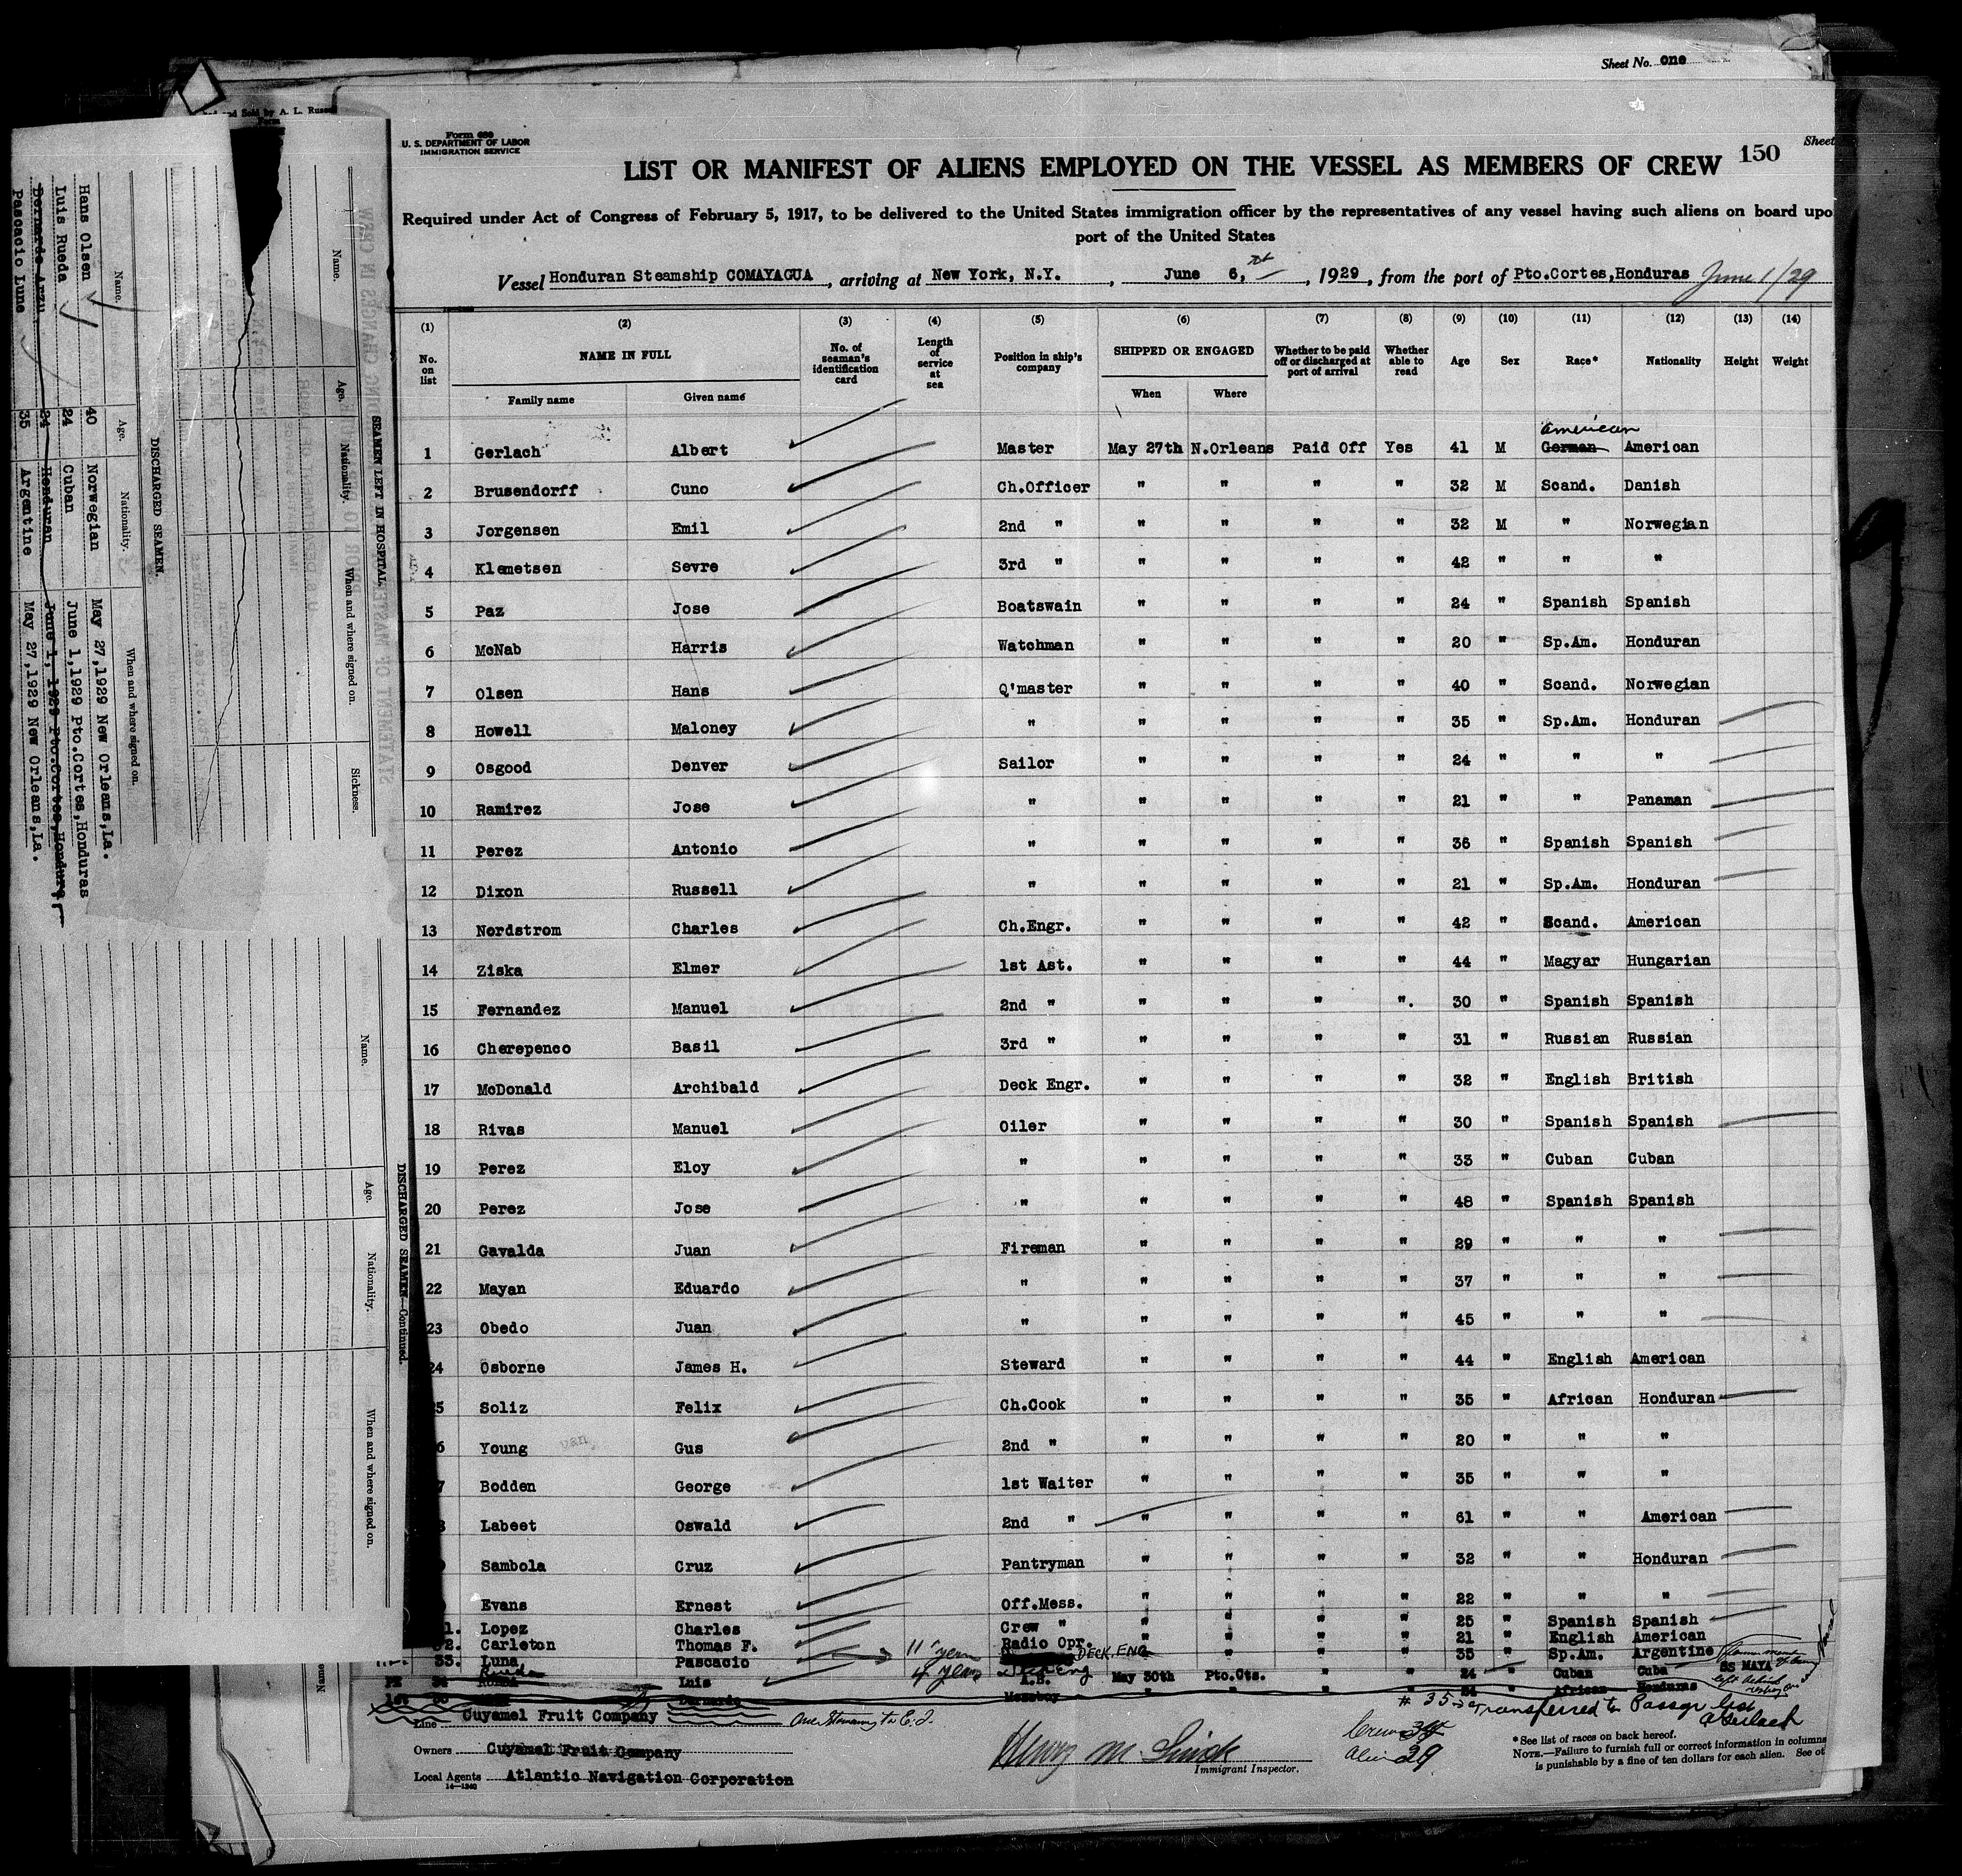 Sheet No. one
Form 680
U. S. DEPARTMENT OF LABOR
IMMIGRATION SERVICE
Sheet
150
LIST OR MANIFEST OF ALIENS EMPLOYED ON THE VESSEL AS MEMBERS OF CREW
Required under Act of Congress of February 5, 1917, to be delivered to the United States immigration officer by the representatives of any vessel having such aliens on board upo
port of the United States
Vessel Honduran Steamship COMAYAGUA, arriving at New York, N.Y., June 6, 1929, from the port of Pto.Cortes,Honduras June 1/29
(1) (2) (3) (4) (5) (6) (7) (8) (9) (10) (11) (12) (13) (14)
No. on list NAME IN FULL No. of seaman's identification card Length of service at sea Position in ship's company SHIPPED OR ENGAGED Whether to be paid off or discharged at port of arrival Whether able to read Age Sex Race* Nationality Height Weight
Family name Given name When Where
American
1 Gerlach Albert Master May 27th N.Orleans Paid Off Yes 41 M German American
2 Brusendorff Cuno Ch.Officer " " " " 32 M Scand. Danish
3 Jorgensen Emil 2nd " " " " " 32 M " Norwegian
4 Klemetsen Sevre 3rd " " " " " 42 " " "
5 Paz Jose Boatswain " " " " 24 " Spanish Spanish
6 McNab Harris Watchman " " " " 20 " Sp.Am. Honduran
7 Olsen Hans Q'master " " " " 40 " Scand. Norwegian
8 Howell Maloney " " " " " 35 " Sp.Am. Honduran
9 Osgood Denver Sailor " " " " 24 " " "
10 Ramirez Jose " " " " " 21 " " Panaman
11 Perez Antonio " " " " " 36 " Spanish Spanish
12 Dixon Russell " " " " " 21 " Sp.Am. Honduran
13 Nordstrom Charles Ch.Engr. " " " " 42 " Scand. American
14 Ziska Elmer 1st Ast. " " " " 44 " Magyar Hungarian
15 Fernandez Manuel 2nd " " " " ". 30 " Spanish Spanish
16 Cherepenco Basil 3rd " " " " " 31 " Russian Russian
17 McDonald Archibald Deck Engr. " " " " 32 " English British
18 Rivas Manuel Oiler " " " " 30 " Spanish Spanish
19 Perez Eloy " " " " " 33 " Cuban Cuban
20 Perez Jose " " " " " 48 " Spanish Spanish
21 Gavalda Juan Fireman " " " " 29 " " "
22 Mayan Eduardo " " " " " 37 " " "
23 Obedo Juan " " " " " 45 " " "
24 Osborne James H. Steward " " " " 44 " English American
5 Soliz Felix Ch.Cook " " " " 35 " African Honduran
6 Young Gus 2nd " " " " " 20 " " "
7 Bodden George 1st Waiter " " " " 35 " " "
8 Labeet Oswald 2nd " " " " " 61 " " American
Sambola Cruz Pantryman " " " " 32 " " Honduran
Evans Ernest Off.Mess. " " " " 22 " " "
1. Lopez Charles Crew " " " " " 25 " Spanish Spanish
32. Carleton Thomas F. Radio Opr. " " " " 21 " English American
33. Luna Pascacio 11 years DECK.ENG " " " " 35 " Sp.Am. Argentine
34 Rueda Luis 4 years A.B. May 30th Pto.Cts. " " 24 " Cuban Cuba SS MAYA
Bernardo Messboy " " " " 34 " African Honduras
# 35 Transferred to Passgr list
AGerlach
Line Cuyamel Fruit Company
Owners Cuyamel Fruit Company
Local Agents Atlantic Navigation Corporation
14—1240
Immigrant Inspector.
Crew 34
Alien 29
*See list of races on back hereof.
NOTE.—Failure to furnish full or correct information in columns
is punishable by a fine of ten dollars for each alien. See ot
SEAMEN LEFT IN HOSPITAL.
Name. Age. Nationality. When and where signed on. Sickness.
DISCHARGED SEAMEN.
Name. Age. Nationality. When and where signed on.
Hans Olsen 40 Norwegian May 27,1929 New Orleans,La.
Luis Rueda 24 Cuban June 1,1929 Pto.Cortes,Honduras
Bernardo Arzu 34 Honduran June 1, 1929 Pto.Cortes,Hondura
Pascacio Lune 35 Argentine May 27,1929 New Orleans,La.
DISCHARGED SEAMEN—Continued.
Name. Age. Nationality. When and where signed on.